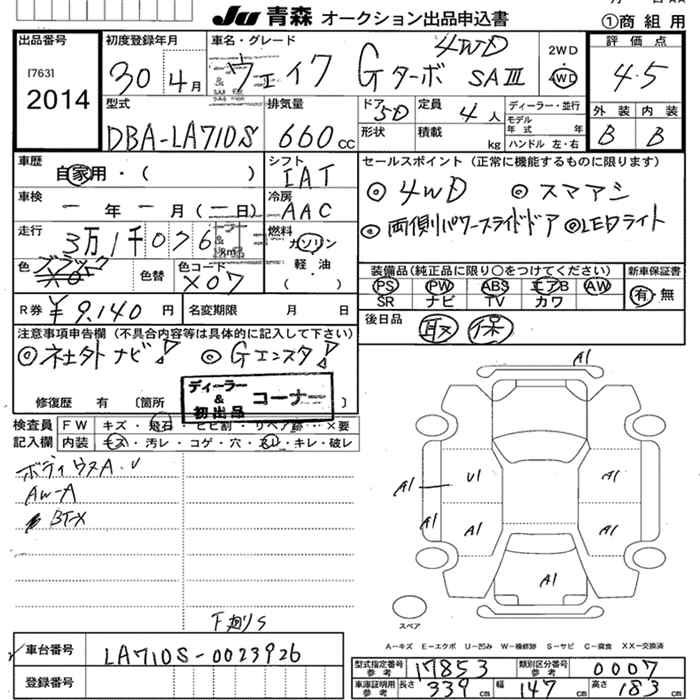 JU 青森 オークション出品申込書
①商 組 用
出品番号
[763]
2014
初度登録年月
30年4月
車名・グレード
ウェイク Gターボ SAⅢ
4WD
2WD
4WD
評価点
4.5
外装 内装
B B
型式
DBA-LA710S
排気量
660cc
ドア 5D
形状
定員 4人
積載 kg
ディーラー・並行
モデル年式 年
ハンドル 左・右
車歴
自家用・( )
シフト
IAT
セールスポイント(正常に機能するものに限ります)
◎4WD ◎スマアシ
◎両側パワースライドドア ◎LEDライト
車検
ー年ー月(ー日)
冷房
AAC
走行
3万1千076
燃料
ガソリン
軽・油
( )
色 ブラック
色替
色コード
X07
装備品(純正品に限り○をつけてください)
PS PW ABS エアB AW
SR ナビ TV カワ
新車保証書
有・無
R券 ¥9,140円
名変期限 月 日
後日品
取 保
注意事項申告欄(不具合内容等は具体的に記入して下さい)
◎社外ナビ ◎Gエンスタ
修復歴 有 (箇所 )
ディーラー
&
初出品
コーナー
検査員
記入欄
FW キズ・飛石・ヒビ割・リペア跡・×要
内装 キズ・汚レ・コゲ・穴・スレ・キレ・破レ
ボディウスA.U
AW-A
BT-X
下廻りS
A1
A1
A1
U1
A1
A1
A1
A1
スペア
A=キズ E=エクボ U=凹み W=補修跡 S=サビ C=腐食 XX=交換済
車台番号
LA710S-0023926
登録番号
型式指定番号
参考
17853
類別区分番号
参考
0007
車庫証明用
参考
長さ 339cm 幅 147cm 高さ 183cm